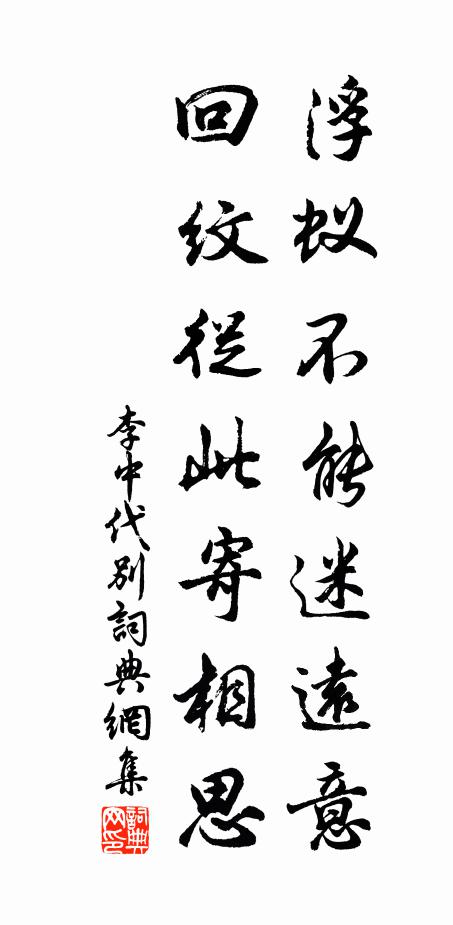 浮蚁不能迷遠意
回紋從此寄相思
李中代别詞典網集
詞典网印